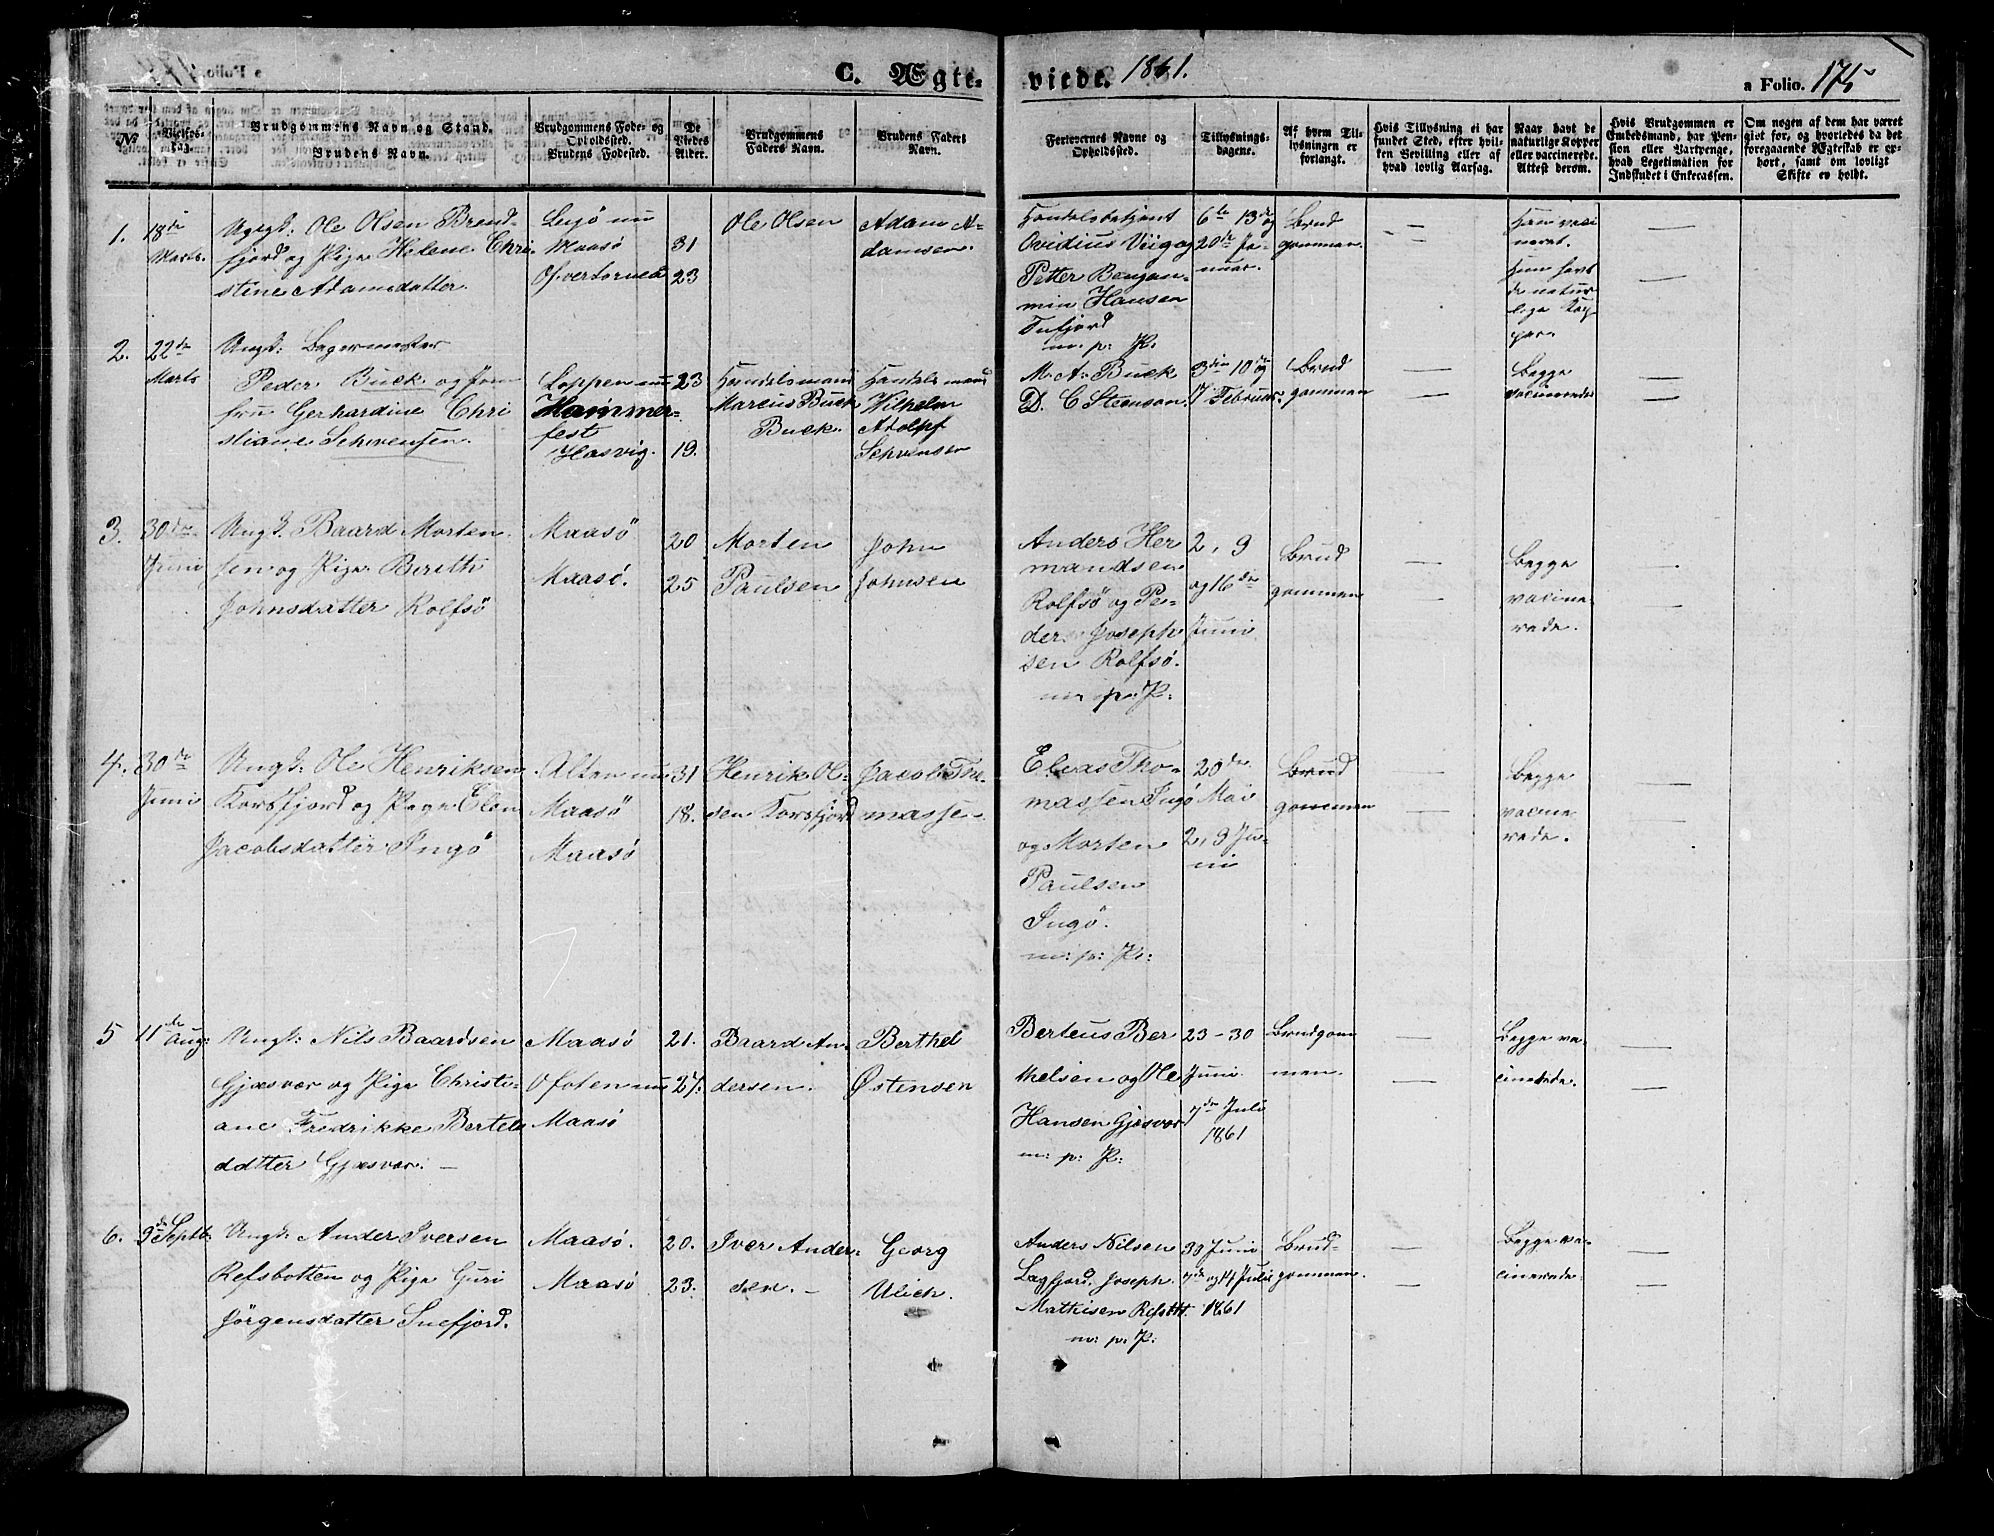 C. Ægteviede. 1861.
a Folio. 175
№
Vielses-
dag.
Brudgommens Navn og Stand.
Brudens Navn.
Brudgommens Føde- og
Opholdssted.
Brudens Fødested.
De
Viedes
Alder.
Brudgommens
Faders Navn.
Brudens Faders
Navn.
Forlovernes Navne og
Opholdssted.
Tillysnings-
dagene.
Af hvem Til-
lysningen er
forlangt.
Hvis Tillysning ei har
fundet Sted, efter hvil-
ken Bevilling eller af
hvad lovlig Aarsag.
Naar havt de
naturlige Kopper
eller vaccinerede.
Attest derom.
Hvis Brudgommen er
Embedsmand, har Pen-
sion eller Vartpenge,
hvad Legitimation for
Indskudet i Enkecassen.
Om nogen af dem har været
gift før, og hvorledes da det
foregaaende Ægteskab er op-
hørt, samt om lovligt
Skifte er holdt.
1.
18de
Marts.
Ungk: Ole Olsen
fjord og Pige Helene Chri-
stine Adamsdatter.
nu
Maasö
Ofvertorneå
31
23
Ole Olsen
Adam A-
damsen.
Handelsbetjent
Ovidius Viig og
Petter Benjan-
min Hansen
Tufjord
m: p: P:
6te 13de og
20de Ja-
nuar.
Brud
gommen.
Ham vaci
neret.
Hun havt
de natur
lige Kop
per.
2.
22de
Marts
Ungk: Bagermester
Peder Buck og Jom
fru Gerhardine Chri
stiane Schvensen.
Loppen nu
Hammer-
fest
Hasvig.
23
19.
Handelsmand
Marcus Buck
Buck.
Handelsmand
Vilhelm
Adolpf
Schvensen
M. A. Buck
D. C. Steenson.
3die 10de og
17 Februar.
Brud
gommen
Begge
vacinerede
3.
30de
Juni
Ungk. Baard Morten
sen og Pige Berith
Johnsdatter Rolfsö
Maasö
Maasö.
20
25
Morten
Paulsen
John
Johnsen
Anders Her
mandsen
Rolfsö og Pe-
der Joseph
sen Rolfsö.
m: p: P:
2, 9
og 16de
Juni
Brud
gommen
Begge
vacine-
rede.
4.
30de
Juni
Ungk: Ole Henriksen
Korsfjord og Pige Elen
Jacobsdatter Ingö
Alten nu
Maasö
Maasö
31
18.
Henrik Ol-
sen Korsfjord
Jacob Tho-
massen
Elias Tho-
massen Ingö
og Morten
Paulsen
Ingö.
m: p: P:
20de
Mai
2, 9 Ju-
ni
Brud
gommen
Begge
vacine
rede.
5
11de
Aug:
Ungk: Nils Baardsen
Gjæsvær og Pige Christi-
ane Fredrikke Bertels
datter Gjæsvær. —
Maasö
Ofoten nu
Maasö
21.
27.
Baard An-
dersen.
Berthel
Østensen
Berteus Ber
thelsen og Ole
Hansen Gjæsvær
m: p: P:
23-30
Juni
7de Juli
1861
Brudgom
men.
Begge va-
cinerede.
6.
9de Septb:
Ungk: Ander Iversen
Refsbotten og Pige Guri
Jörgensdatter Snefjord.
Maasö.
Maasö
20.
23.
Iver Ander-
sen. -
Georg
Ulich.
Anders Nilsen
Lagfjord, Joseph
Mathisen Refsbtt.
m: p: P:
30 Juni
7de og 14 Juli
1861
Brud-
gommen.
Begge va-
cinerede